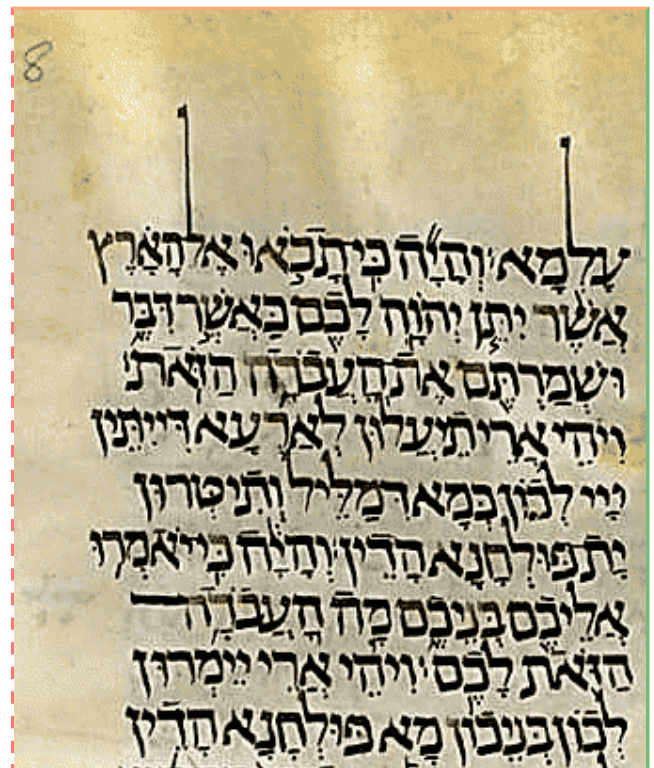 8
עָלְמָא: וְהָיָה כִּי תָבֹאוּ אֶל הָאָרֶץ
אֲשֶׁר יִתֵּן יְהוָה לָכֶם כַּאֲשֶׁר דִּבֵּר
וּשְׁמַרְתֶּם אֶת הָעֲבֹדָה הַזֹּאת:
וִיהֵי אֲרֵי תֵיעֲלוּן לְאַרְעָא דְּיִתֵּין
יְיָי לְכוֹן כְּמָא דְּמַלֵּיל וְתִיטְּרוּן
יָת פּוּלְחָנָא הָדֵין: וְהָיָה כִּי יֹאמְרוּ
אֲלֵיכֶם בְּנֵיכֶם מָה הָעֲבֹדָה
הַזֹּאת לָכֶם: וִיהֵי אֲרֵי יֵימְרוּן
לְכוֹן בְּנֵיכוֹן מָא פּוּלְחָנָא הָדֵין